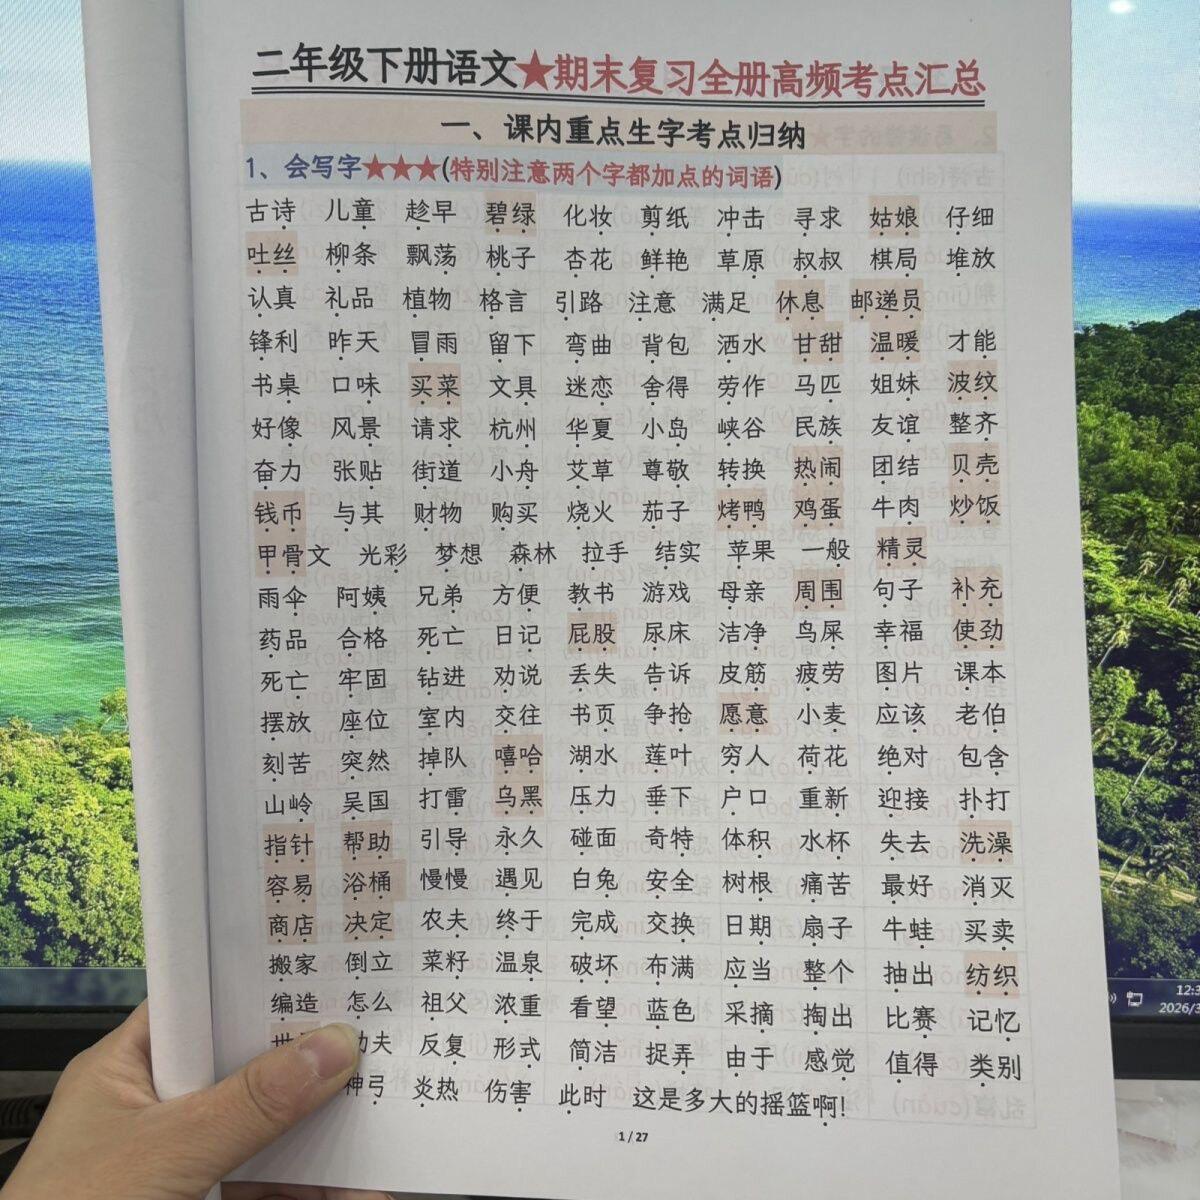 二年级下册语文★期末复习全册高频考点汇总
一、课内重点生字考点归纳
1、会写字★★★(特别注意两个字都加点的词语)
古诗 儿童 趁早 碧绿 化妆 剪纸 冲击 寻求 姑娘 仔细
吐丝 柳条 飘荡 桃子 杏花 鲜艳 草原 叔叔 棋局 堆放
认真 礼品 植物 格言 引路 注意 满足 休息 邮递员
锋利 昨天 冒雨 留下 弯曲 背包 洒水 甘甜 温暖 才能
书桌 口味 买菜 文具 迷恋 舍得 劳作 马匹 姐妹 波纹
好像 风景 请求 杭州 华夏 小岛 峡谷 民族 友谊 整齐
奋力 张贴 街道 小舟 艾草 尊敬 转换 热闹 团结 贝壳
钱币 与其 财物 购买 烧火 茄子 烤鸭 鸡蛋 牛肉 炒饭
甲骨文 光彩 梦想 森林 拉手 结实 苹果 一般 精灵
雨伞 阿姨 兄弟 方便 教书 游戏 母亲 周围 句子 补充
药品 合格 死亡 日记 屁股 尿床 洁净 鸟屎 幸福 使劲
死亡 牢固 钻进 劝说 丢失 告诉 皮筋 疲劳 图片 课本
摆放 座位 室内 交往 书页 争抢 愿意 小麦 应该 老伯
刻苦 突然 掉队 嘻哈 湖水 莲叶 穷人 荷花 绝对 包含
山岭 吴国 打雷 乌黑 压力 垂下 户口 重新 迎接 扑打
指针 帮助 引导 永久 碰面 奇特 体积 水杯 失去 洗澡
容易 浴桶 慢慢 遇见 白兔 安全 树根 痛苦 最好 消灭
商店 决定 农夫 终于 完成 交换 日期 扇子 牛蛙 买卖
搬家 倒立 菜籽 温泉 破坏 布满 应当 整个 抽出 纺织
编造 怎么 祖父 浓重 看望 蓝色 采摘 掏出 比赛 记忆
夫 反复 形式 简洁 捉弄 由于 感觉 值得 类别
神弓 炎热 伤害 此时 这是多大的摇篮啊!
1 / 27